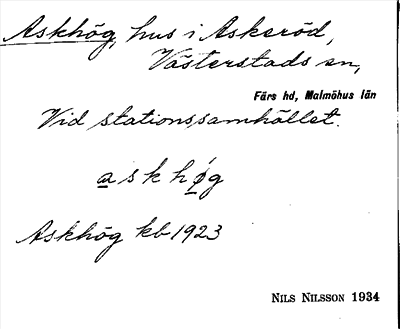 Askhög, hus i Askeröd,
Västerstads sn,
Färs hd, Malmöhus län
Vid stationssamhället.
askhög
Askhög kb 1923
NILS NILSSON 1934